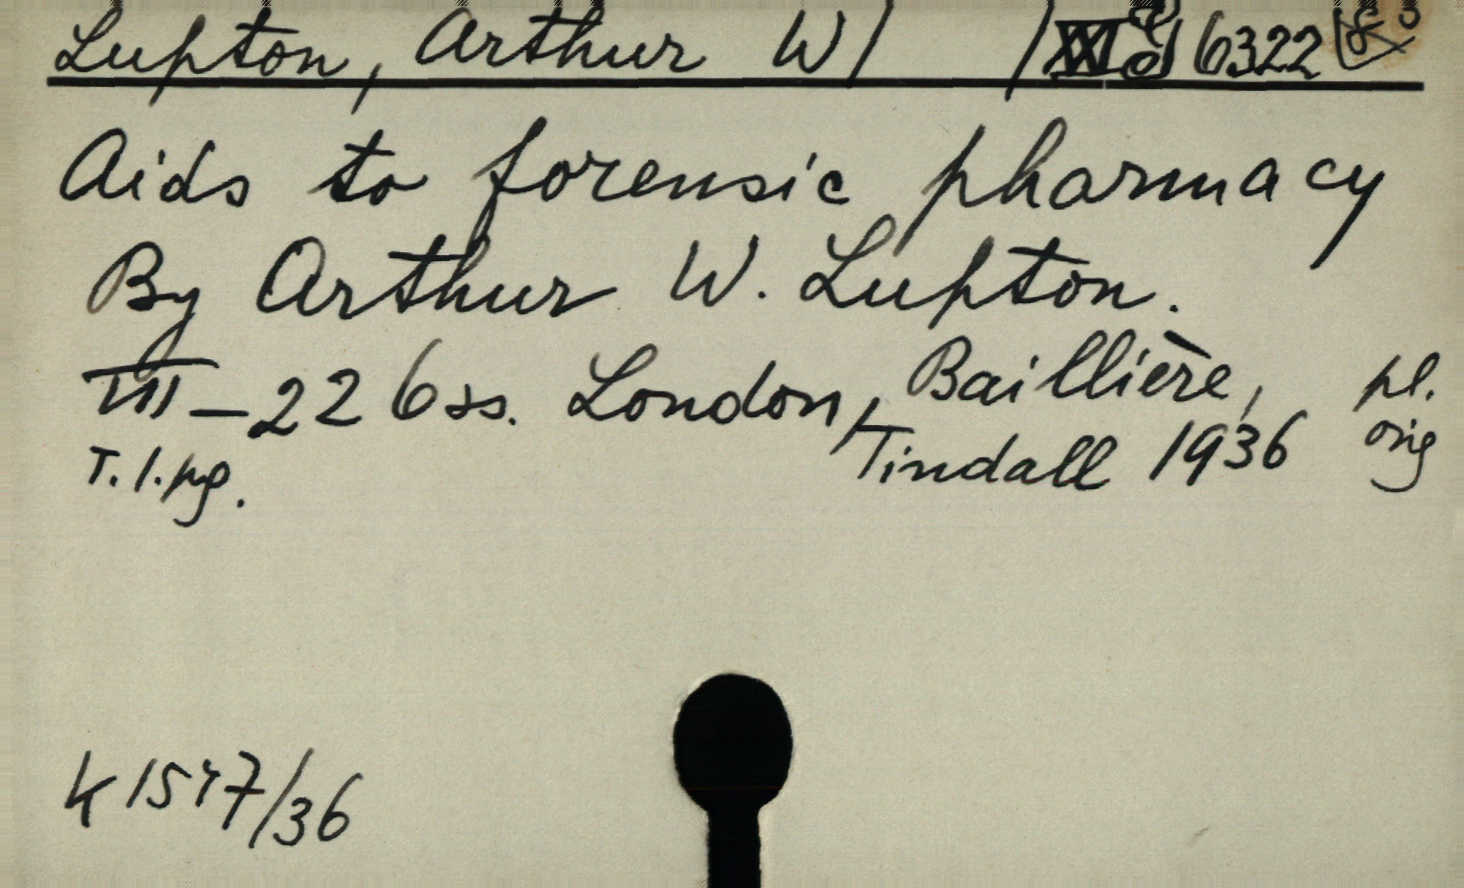 Lupton, Arthur W 6322
Aids to forensic pharmacy
By Arthur W. Lupton.
VIII–226 ss. London, Baillière, pl.
Tindall 1936 orig
T. l. ang.
K 1547/36